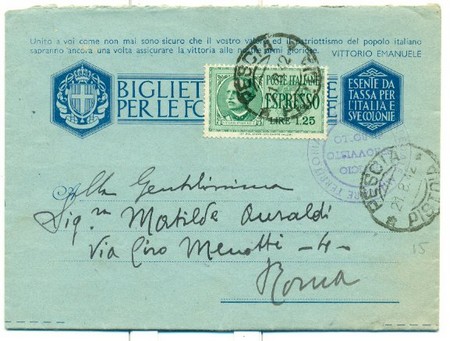 Unito a voi come non mai sono sicuro che il vostro valore ed il patriottismo del popolo italiano
sapranno ancora una volta assicurare la vittoria alle nostre armi gloriose.
VITTORIO EMANUELE
BIGLIET
PER LE FO
POSTE ITALIANE
ESPRESSO
LIRE 1.25
ESENTE DA
TASSA PER
L'ITALIA E
SVE COLONIE
PESCIA
PESCIA
21.8.42
PISTOIA
Alla Gentilissima
Sig.na Matilde Auraldi
Via Ciro Menotti - 4 -
Roma
15